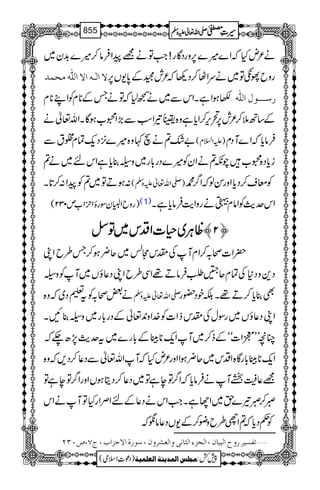 سیرتِ مصطفیٰ صلی اللہ تعالیٰ علیہ وسلم 855
نے عرض کیا کہ اے میرے پروردگار! جب تو نے مجھے پیدا فرما کر میرے بدن میں
روح پھونکی تو میں نے سر اٹھا کر دیکھا کہ عرش مجید کے پایوں پر لا الہ الا اللہ محمد
رسول اللہ لکھا ہوا ہے۔ اس سے میں نے سمجھ لیا کہ تو نے جس کے نام کو اپنے نام
کے ساتھ ملا کر عرش پر تحریر کرایا ہے وہ یقیناً تیرا سب سے بڑا محبوب ہوگا۔ اللہ تعالیٰ نے
فرمایا کہ اے آدم (علیہ السلام) بے شک تم نے سچ کہا وہ میرے نزدیک تمام مخلوق سے
زیادہ محبوب ہیں چونکہ تم نے ان کو میرے دربار میں وسیلہ بنایا ہے اس لئے میں نے تم
کو معاف کر دیا اور سن لو کہ اگر محمد (صلی اللہ تعالیٰ علیہ وسلم) نہ ہوتے تو میں تم کو پیدا نہ کرتا۔
اس حدیث کو امام بیہقی نے روایت فرمایا ہے۔(1) (روح البیان سورۂ احزاب ص۲۳۰)
﴿۲﴾ ظاہری حیاتِ اقدس میں توسل
حضرات صحابہ کرام آپ کی مقدس مجالس میں حاضر ہو کر جس طرح اپنی
دین و دنیا کی تمام حاجتیں طلب فرماتے تھے اسی طرح اپنی دعاؤں میں آپ کو وسیلہ
بھی بنایا کرتے تھے۔ بلکہ خود حضور صلی اللہ تعالیٰ علیہ وسلم نے بعض صحابہ کو یہ تعلیم دی کہ وہ
اپنی دعاؤں میں رسول کی مقدس ذات کو خداوند تعالیٰ کے دربار میں وسیلہ بنائیں۔
چنانچہ ’’معجزات‘‘ کے ذکر میں آپ ایک نابینا کے بارے میں یہ حدیث پڑھ چکے کہ
ایک نابینا بارگاہ اقدس میں حاضر ہوا اور عرض کیا کہ آپ اللہ تعالیٰ سے دعا کر دیں کہ وہ
مجھے عافیت بخشے آپ نے فرمایا کہ اگر تو چاہے تو میں دعا کر دیتا ہوں اور اگر تو چاہے تو
صبر کر صبر تیرے حق میں اچھا ہے۔ جب اس نے دعا کے لئے اصرار کیا تو آپ نے اس
کو حکم دیا کہ تم اچھی طرح وضو کر کے یوں دعا مانگو کہ
......تفسیر روح البیان، الجزء الثانی والعشرون، سورۃ الاحزاب، ج۷، ص۲۳۰
پیش کش: مجلس المدینۃ العلمیۃ (دعوتِ اسلامی)